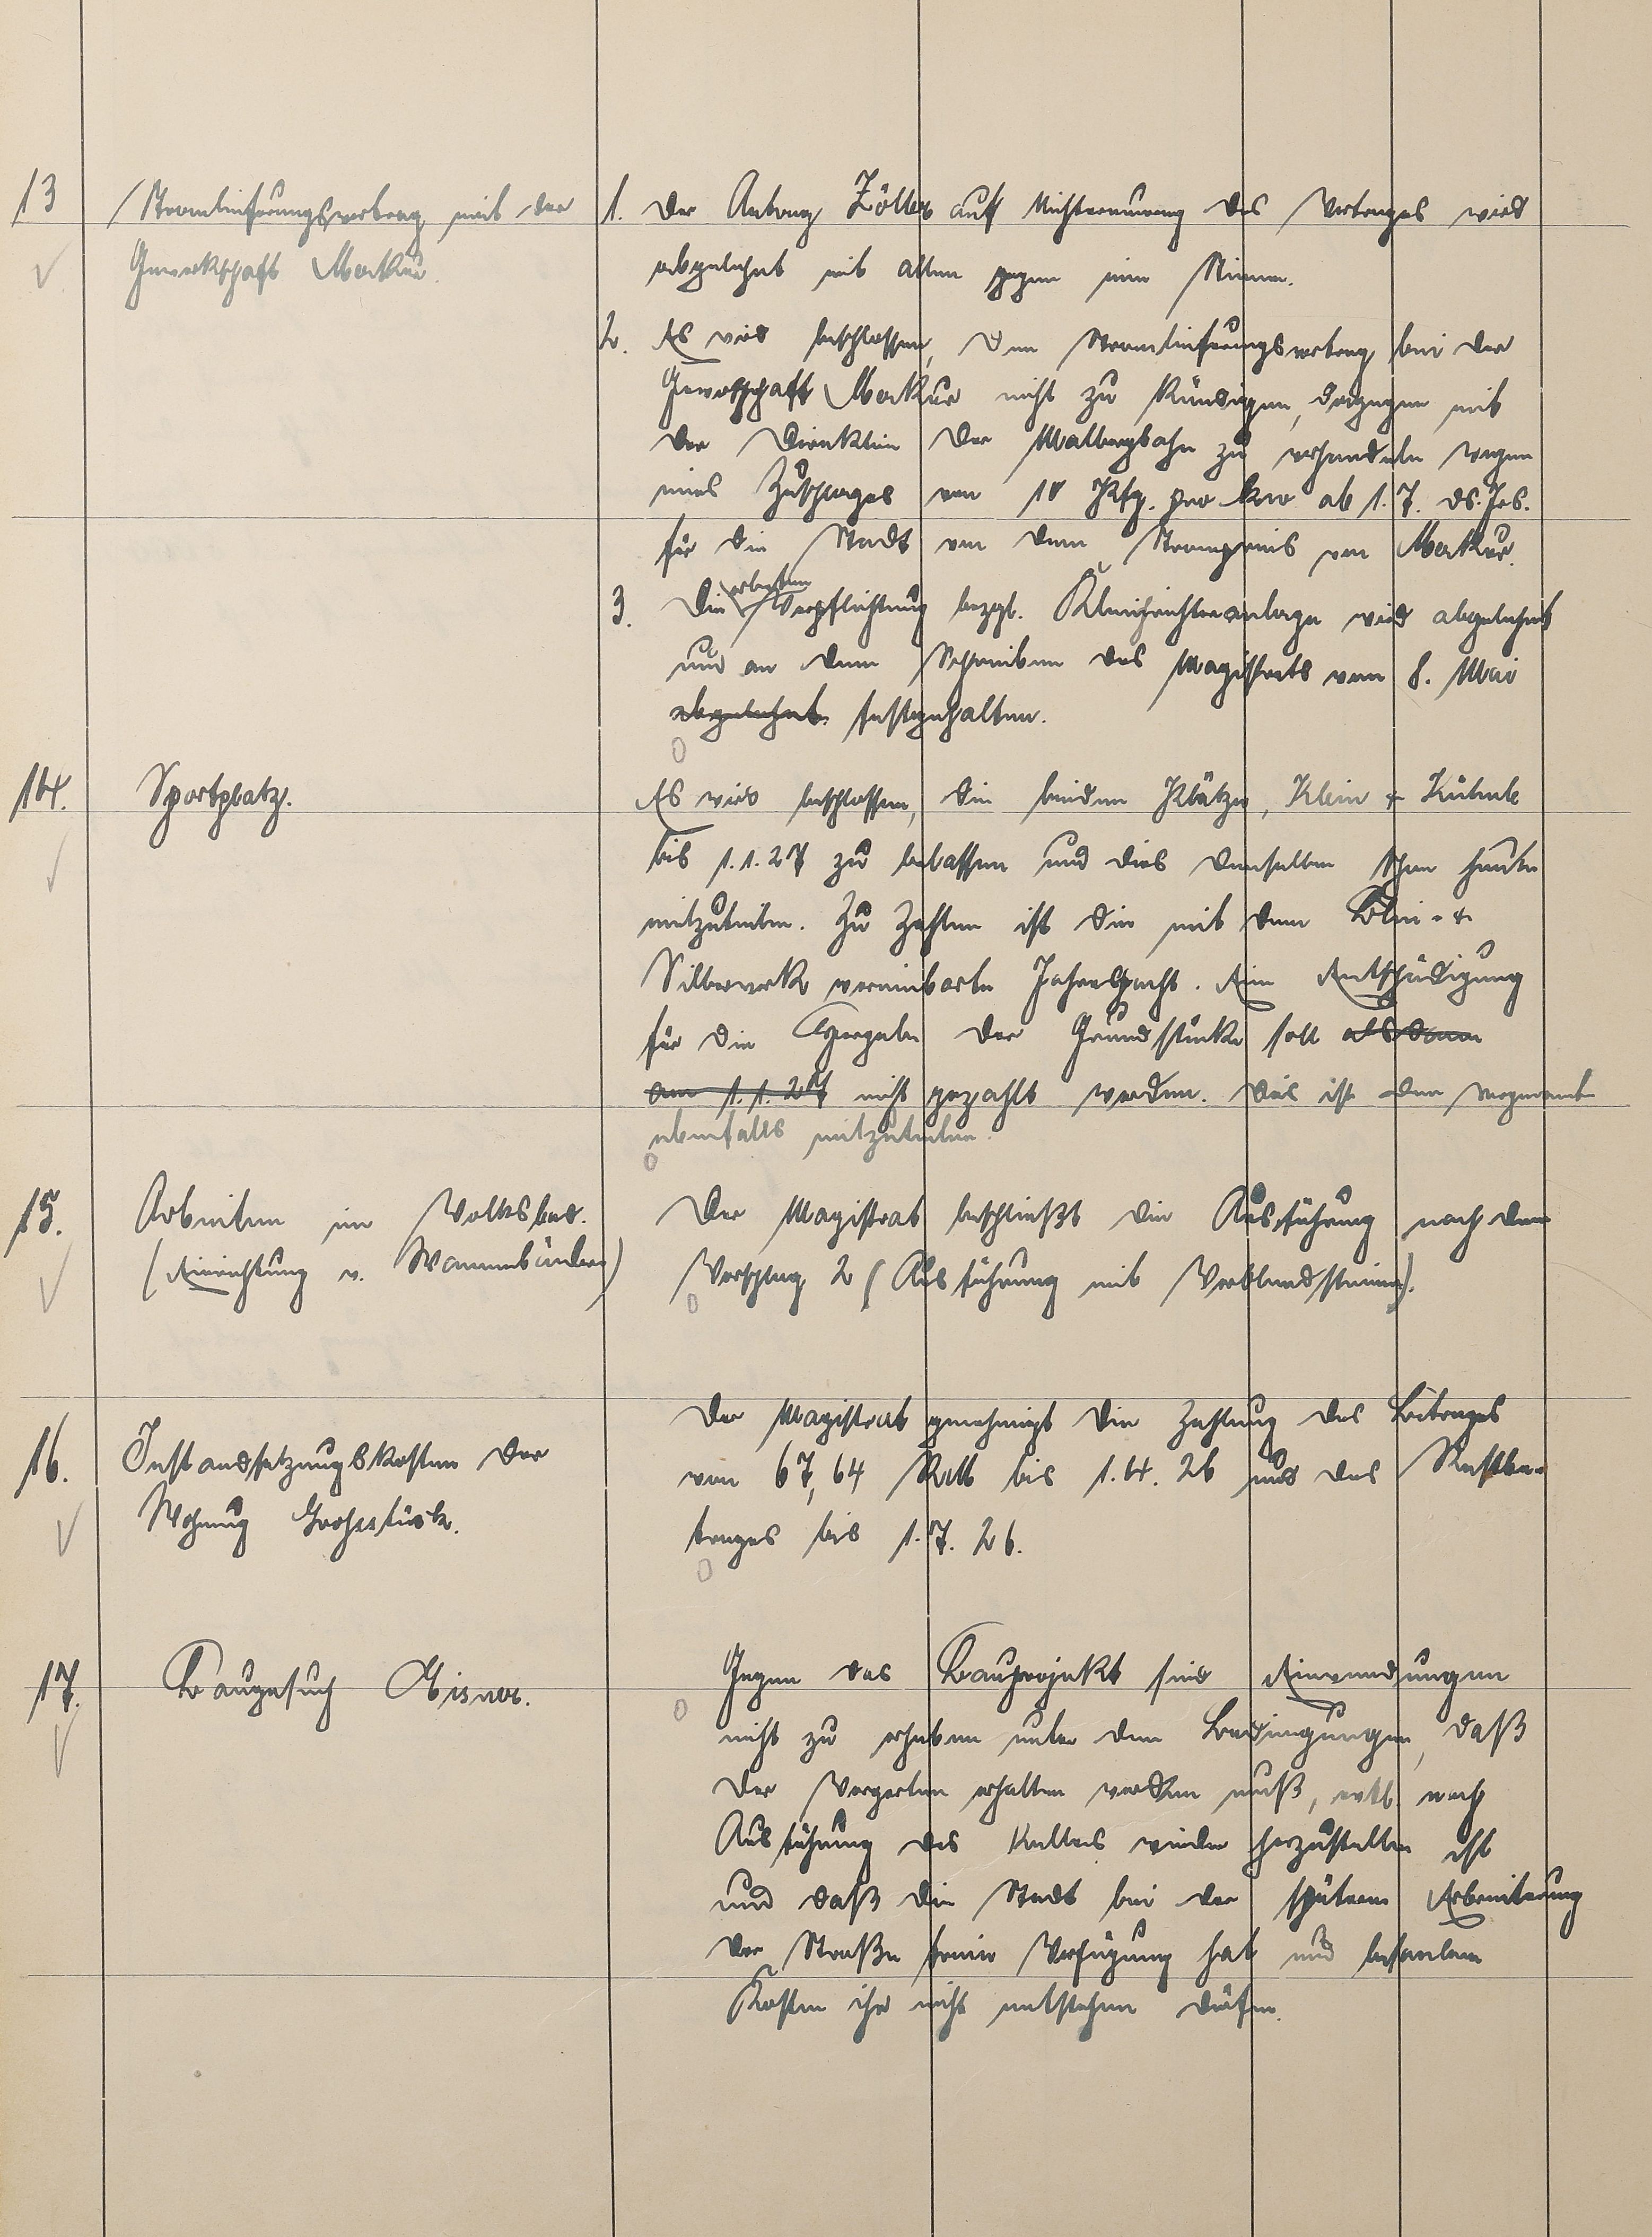 13
Stromlieferungsvertrag mit der
Gewerkschaft Merkur.
1. Der Antrag Zöller auf Nichterneuerung des Vertrages wird
abgelehnt mit allen gegen eine Stimme.
2. Es wird beschlossen, den Stromlieferungsvertrag bei der
Gewerkschaft Merkur nicht zu kündigen, dagegen mit
der Direktion der Malbergbahn zu verhandeln wegen
eines Zuschlages von 10 Pfg. pro kw ab 1.7. ds. Jrs.
für die Stadt von dem Strompreis von Merkur.
3. Die erbetene Verpflichtung bezgl. Gleichrichteranlage wird abgelehnt
und an dem Schreiben des Magistrats vom 8. Mai
abgelehnt festgehalten.
14.
Sportplatz.
Es wird beschlossen, die beiden Plätze, Klein + Kühnle
bis 1.1.27 zu belassen und dies denselben schon heute
mitzuteilen. Zu zahlen ist die mit dem Blei- +
Silberwerk vereinbarte Jahrespacht. Eine Entschädigung
für die Hergabe der Grundstücke soll alsdann
am 1.1.27 nicht gezahlt werden. Dies ist den
ebenfalls mitzuteilen.
15.
Arbeiten im Volksbad.
(Einrichtung v. Wannenbädern)
Der Magistrat beschließt die Ausführung nach dem
Vorschlag 2 (Ausführung mit Verblendsteinen).
16.
Instandsetzungskosten der
Wohnung
Der Magistrat genehmigt die Zahlung des Beitrages
von 67,64 RM bis 1.4.26 und des Restbe-
trages bis 1.7.26.
17.
Baugesuch
Gegen das Bauprojekt sind Einwendungen
nicht zu erheben unter den Bedingungen, daß
der Vorgarten erhalten werden muß, evtl. nach
Ausführung des Kellers wieder herzustellen ist
und daß die Stadt bei der späteren Verbreiterung
der Straße freie Verfügung hat und besondere
Kosten ihr nicht entstehen dürfen.